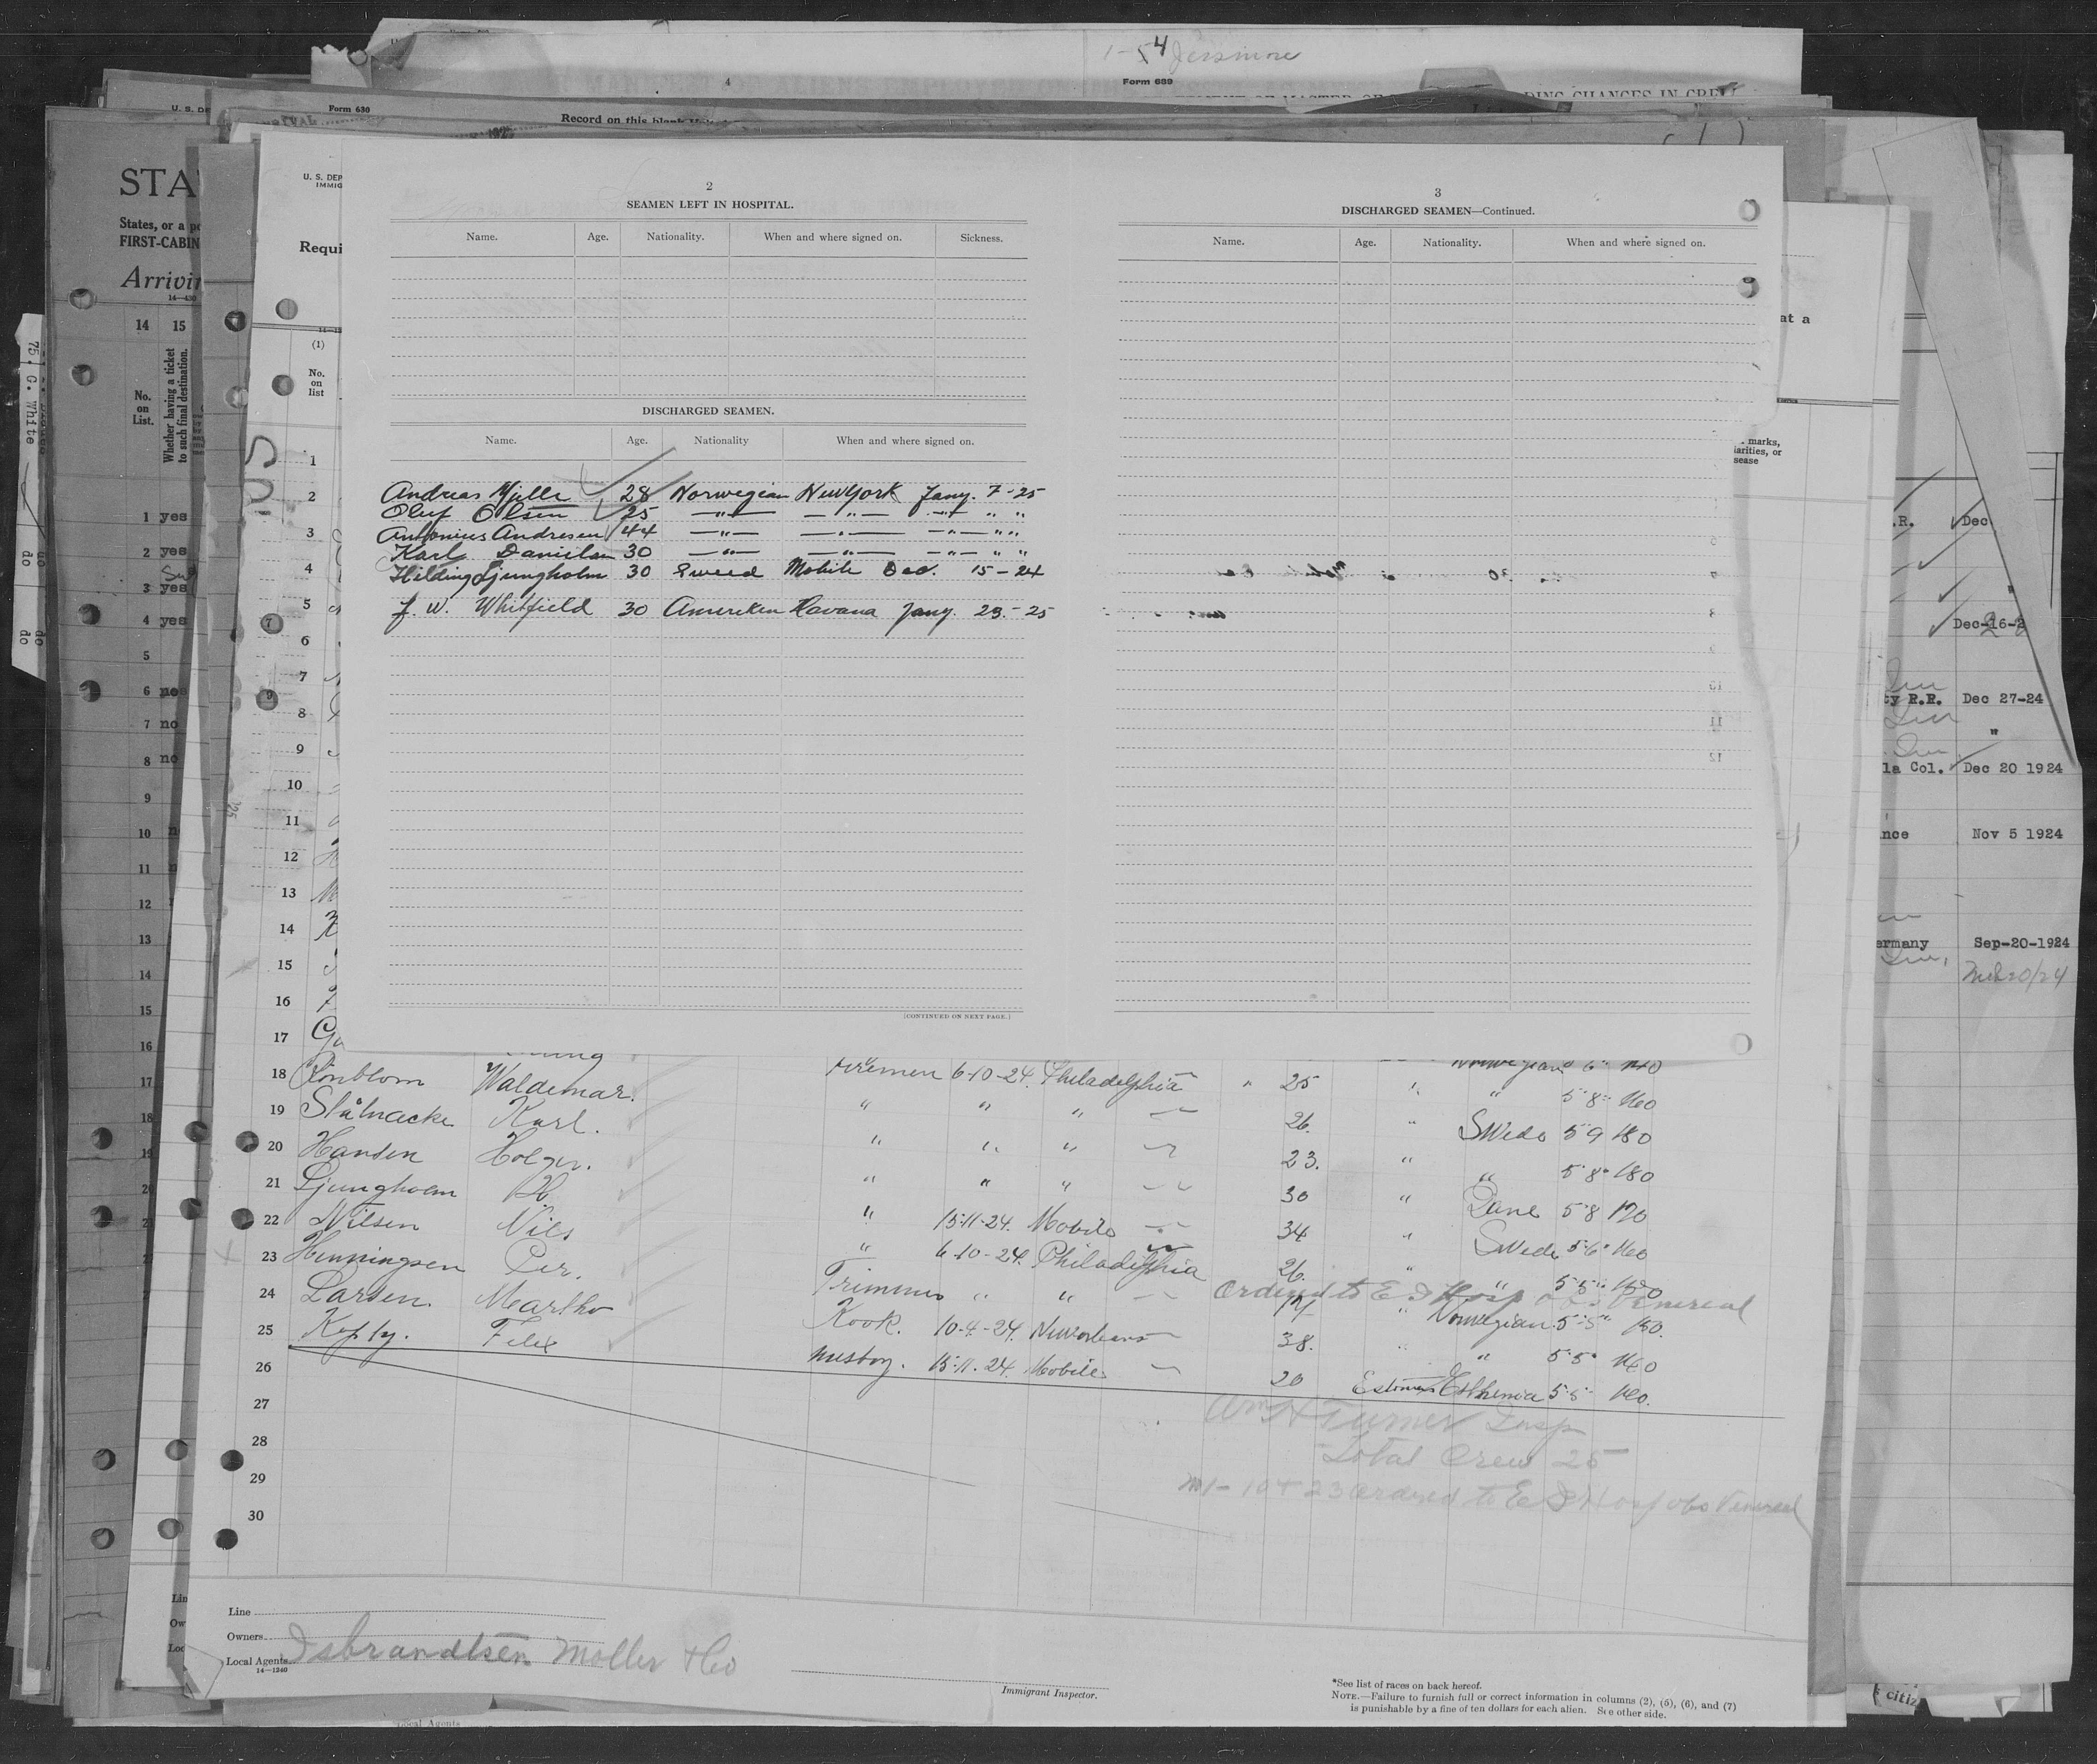 1-54 Jessmore
4
Form 689
DING CHANGES IN CREW
U. S. DE
Form 630
Record on this blank
STA
States, or a po
FIRST-CABIN
Arrivin
14—430
14 15
No. on List.
Whether having a ticket to such final destination.
1 yes
2 yes
3 yes
4 yes
5
6 no
7 no
8 no
9
10
11
12
13
14
15
16
17
18
19
20
75. G. White
do do
do do
U. S. DEP
IMMIG
Requi
(1)
No. on list
1
2
3
4
5
6
7
8
9
10
11
12
13
14
15
16
17
2
SEAMEN LEFT IN HOSPITAL.
Name. Age. Nationality. When and where signed on. Sickness.
DISCHARGED SEAMEN.
Name. Age. Nationality When and where signed on.
Andreas Mjelle 28 Norwegian New York Jany. 7-25
Oluf Olsen 25 —"— —"— —"— " "
Antonius Andresen 44 —"— —"— —"— " "
Karl Danielsen 30 —"— —"— —"— " "
Hilding Ljungholm 30 Sweed Mobile Dec. 15-24
J. W. Whitfield 30 Amereken Havana Jany. 23.-25
[CONTINUED ON NEXT PAGE.]
3
DISCHARGED SEAMEN—Continued.
Name. Age. Nationality. When and where signed on.
at a
marks,
iarities, or
sease
.R. Dec.
Dec-16-2
ty R.R. Dec 27-24
"
la Col. Dec 20 1924
nce Nov 5 1924
ermany Sep-20-1924
18 Rönblom Waldemar. Firemen 6-10-24. Philadelphia " 25 " Norwegian 5'6" 140
19 Stålnacke Karl. " " " 26. " " 5'8" 160
20 Hansen Holger. " " " 23. " Swede 5'9 180
21 Ljungholm H. " " " 30 " " 5'8" 180
22 Nilsen Nils " 15-11-24. Mobile 34 " Dane 5'8 170
23 Henningsen Per. " 6-10-24. Philadelphia 26. " Swede 5'6" 160
Ordered to E I Hosp obs Venereal
24 Larsen. Martho Trimmer " " 17 " " 5'5" 150
25 Koply. Felix Kook. 10-4-24. New Orleans 38. " Norwegian 5'5" 150.
" " 5'5" 140
26 Messboy. 15-11-24. Mobile 20 Estonia Esthenia 5'5" 140.
27
28
29
30
Wm H Turner Insp
Total Crew 25
10 + 23 Ordered to E I Hosp obs Venereal
Line
Owners
Local Agents
Isbrandtsen Moller & Co
14—1240
Immigrant Inspector.
*See list of races on back hereof.
NOTE.—Failure to furnish full or correct information in columns (2), (5), (6), and (7)
is punishable by a fine of ten dollars for each alien. See other side.
Lin
Ow
Loc
Local Agents
citiz